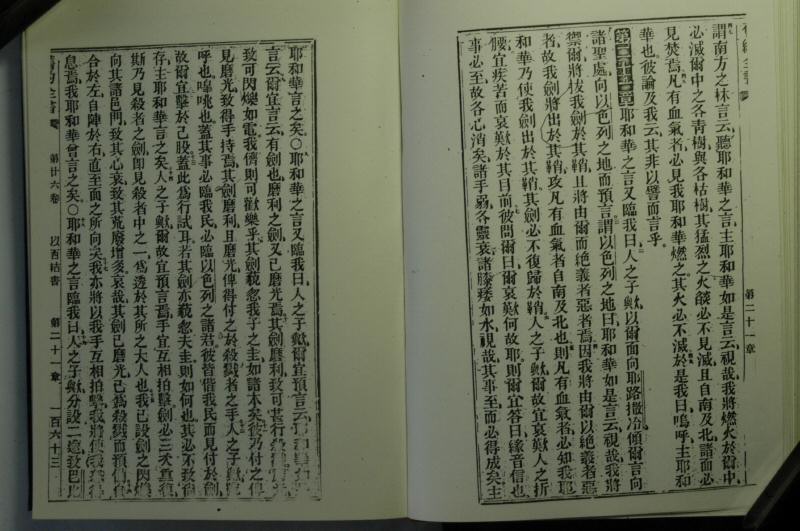 舊約全書
第二十一章
謂南方之林言云聽耶和華之言主耶和華如是言云視哉我將燃火於爾中
必滅爾中之各靑樹與各枯樹其猛烈之火燄必不見滅且自南及北諸面必
見焚焉凡有血氣者必見我耶和華燃之其火必不減於是我曰嗚呼主耶和
華也彼論及我云其非以譬而言乎
耶和華之言又臨我曰人之子歟以爾面向耶路撒冷傾爾言向
諸聖處向以色列之地而預言謂以色列之地曰耶和華如是言云視哉我將
禦爾將拔我劍於其鞘且將由爾而絕義者惡者焉因我將由爾以絕義者惡
者故我劍將出於其鞘攻凡有血氣者自南及北也則凡有血氣者必知我耶
和華乃使我劍出於其鞘其劍必不復歸於鞘人之子歟爾故宜哀歎人之折
腰宜疾苦而哀歎於其目前彼問爾曰爾哀歎何故耶則爾宜答曰緣音信也
事必至故各心消矣諸手弱各靈衰諸膝痿如水視哉其事至而必得成矣主
耶和華言之矣○耶和華之言又臨我曰人之子歟爾宜預言云
言云爾宜言云有劍也磨利之劍又已磨光焉其劍磨利致可
致可閃爍如電我儕則可歡樂乎其劍藐忽我子之圭如諸木矣彼乃付之
見磨光致得手持焉其劍磨利且磨光俾得付之於殺戮者之手人之子歟
呼也嘷咷也蓋其事必臨我民必臨以色列之諸君彼皆偕我民而見付於劍
故爾宜擊於己股蓋此爲行試耳若其劍亦藐忽夫圭則如何也其必不致
存主耶和華言之矣人之子歟爾故宜預言焉手宜互相拍擊劍必三次重
斯乃見殺者之劍卽見殺者中之一爲透於其所之大人也我已設劍之閃
向其諸邑門致其心衰致其荒廢增多哀哉其劍已磨光已爲殺戮而預備
合於左自陣於右直至面之所向矣我亦將以我手互相拍擊我將使我
息焉我耶和華曾言之矣○耶和華之言臨我曰人之子歟分設二途致巴
舊約全書
第廿六卷
以西結書
第二十一章
一百六十三